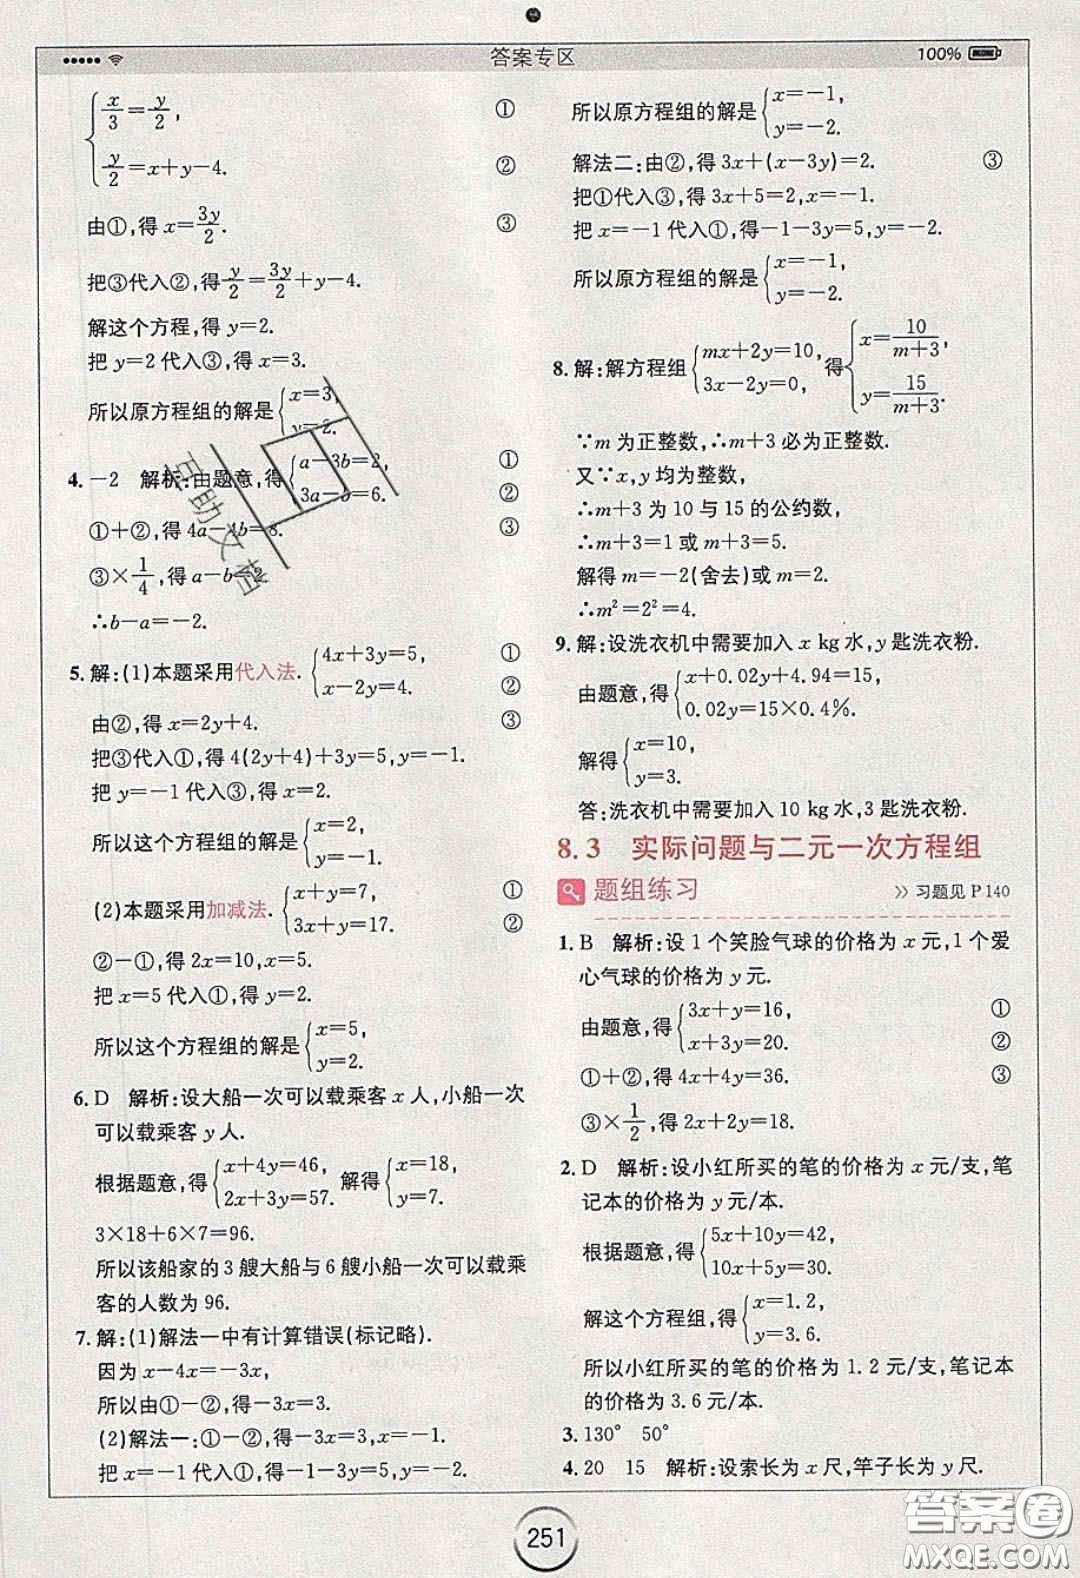 答案专区
100%
x/3=y/2, ①
y/2=x+y-4. ②
由①,得 x=3y/2. ③
把③代入②,得y/2=3y/2+y-4.
解这个方程,得 y=2.
把 y=2 代入③,得 x=3.
所以原方程组的解是{x=3,
y=2.
4. -2 解析:由题意,得{a-3b=2, ①
3a-b=6. ②
①+②,得 4a-4b=8. ③
③×1/4,得 a-b=2
∴b-a=-2.
5. 解:(1)本题采用代入法. {4x+3y=5, ①
x-2y=4. ②
由②,得 x=2y+4. ③
把③代入①,得 4(2y+4)+3y=5,y=-1.
把 y=-1 代入③,得 x=2.
所以这个方程组的解是{x=2,
y=-1.
(2)本题采用加减法. {x+y=7, ①
3x+y=17. ②
②-①,得 2x=10,x=5.
把 x=5 代入①,得 y=2.
所以这个方程组的解是{x=5,
y=2.
6. D 解析:设大船一次可以载乘客 x 人,小船一次
可以载乘客 y 人.
根据题意,得{x+4y=46, 解得{x=18,
2x+3y=57. y=7.
3×18+6×7=96.
所以该船家的 3 艘大船与 6 艘小船一次可以载乘
客的人数为 96.
7. 解:(1)解法一中有计算错误(标记略).
因为 x-4x=-3x,
所以由①-②,得-3x=3.
(2)解法一:①-②,得-3x=3,x=-1.
把 x=-1 代入①,得-1-3y=5,y=-2.
所以原方程组的解是{x=-1,
y=-2.
解法二:由②,得 3x+(x-3y)=2. ③
把①代入③,得 3x+5=2,x=-1.
把 x=-1 代入①,得-1-3y=5,y=-2.
所以原方程组的解是{x=-1,
y=-2.
8. 解:解方程组{mx+2y=10, 得{x=10/(m+3),
3x-2y=0, y=15/(m+3).
∵m 为正整数,∴m+3 必为正整数.
又∵x,y 均为整数,
∴m+3 为 10 与 15 的公约数,
∴m+3=1 或 m+3=5.
解得 m=-2(舍去)或 m=2.
∴m²=2²=4.
9. 解:设洗衣机中需要加入 x kg 水,y 匙洗衣粉.
由题意,得{x+0.02y+4.94=15,
0.02y=15×0.4%.
解得{x=10,
y=3.
答:洗衣机中需要加入 10 kg 水,3 匙洗衣粉.
8.3 实际问题与二元一次方程组
题组练习 >> 习题见 P140
1. B 解析:设 1 个笑脸气球的价格为 x 元,1 个爱
心气球的价格为 y 元.
由题意,得{3x+y=16, ①
x+3y=20. ②
①+②,得 4x+4y=36. ③
③×1/2,得 2x+2y=18.
2. D 解析:设小红所买的笔的价格为 x 元/支,笔
记本的价格为 y 元/本.
根据题意,得{5x+10y=42,
10x+5y=30.
解这个方程组,得{x=1.2,
y=3.6.
所以小红所买的笔的价格为 1.2 元/支,笔记本
的价格为 3.6 元/本.
3. 130° 50°
4. 20 15 解析:设索长为 x 尺,竿子长为 y 尺.
251
答案圈
MXQE.COM